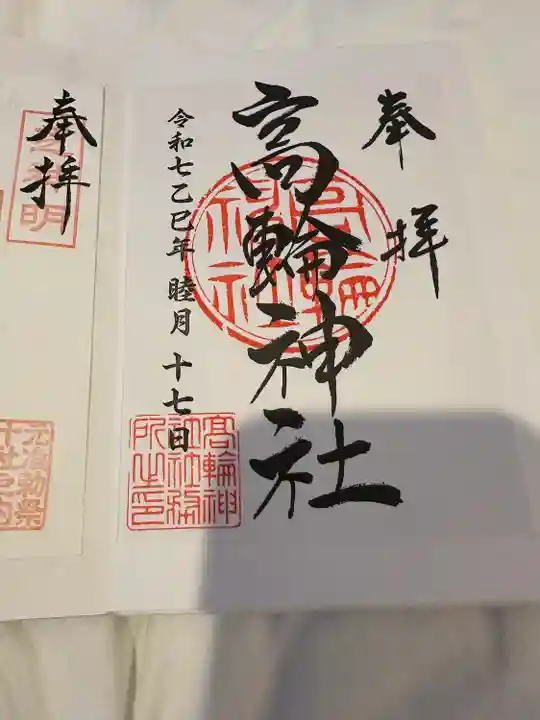 奉拝
高輪神社
令和七乙巳年 睦月 十七日
高輪神社
高輪神社社務所之印
奉拝